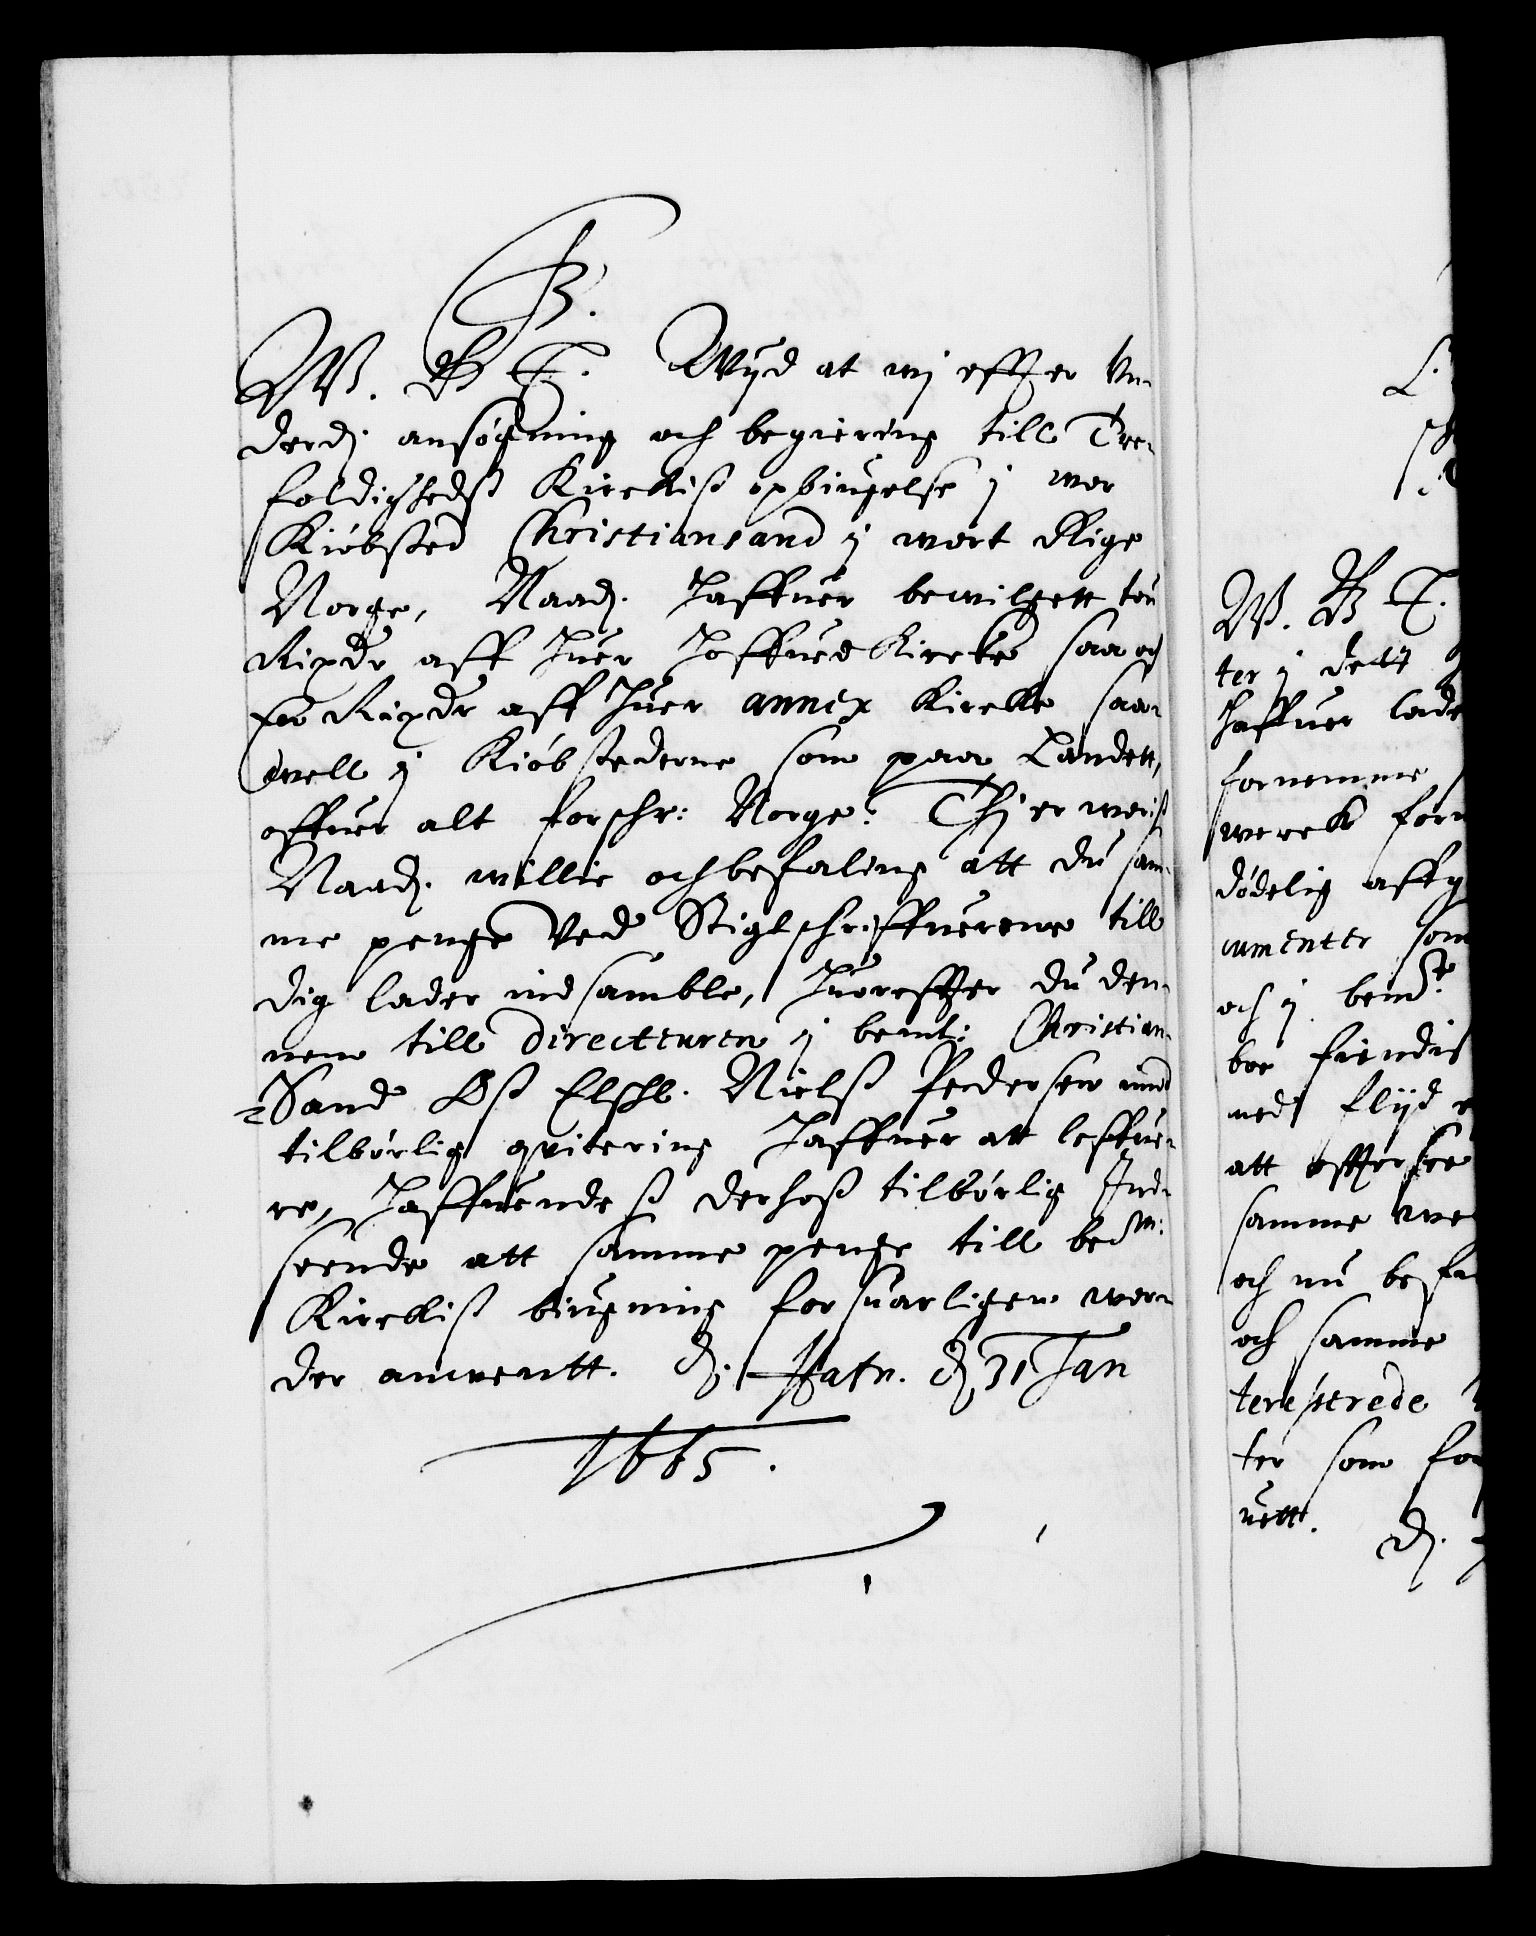 B.
W. G T. Wijd at wj effter Un-
derd. ansøgning och begiering till Tree-
foldighedß Kirckiß opbiugelse j wor
Kiøbsted Christiansand j wort Rige
Norge, Naad. haffuer bewilgett tou
Rixdr aff huer hoffued Kircke saa och
En Rixdr aff huer annex Kircke saa-
well j Kiøbstederne som paa Landett,
offuer alt forschr: Norge: Thj er woriß
Naad. willie och befaling att du sam-
me penge Ved Stigtschriffuerene till
dig lader indsamble, huoreffter du den-
nem till Directeuren j bemt: Christian-
Sand Oß Elschl. Nielß Pedersen imod
tilbørlig qvitering haffuer att leffue-
re, haffuendeß derhoß tilbørlig Ind-
seende att samme penge till bem:
Kirckiß biugning forsuarligen wor-
der anwentt. d. Hafn. d 31 Jan
1665.
L.
W. G T.
ter j dett
haffuer lade
fornemme
werck for
dødelig affg
umenter som
och j bemt:
boe findis
med flijd
att effterse
samme we
och nu befa
och samme
teresserede
ter som for
uett. d.